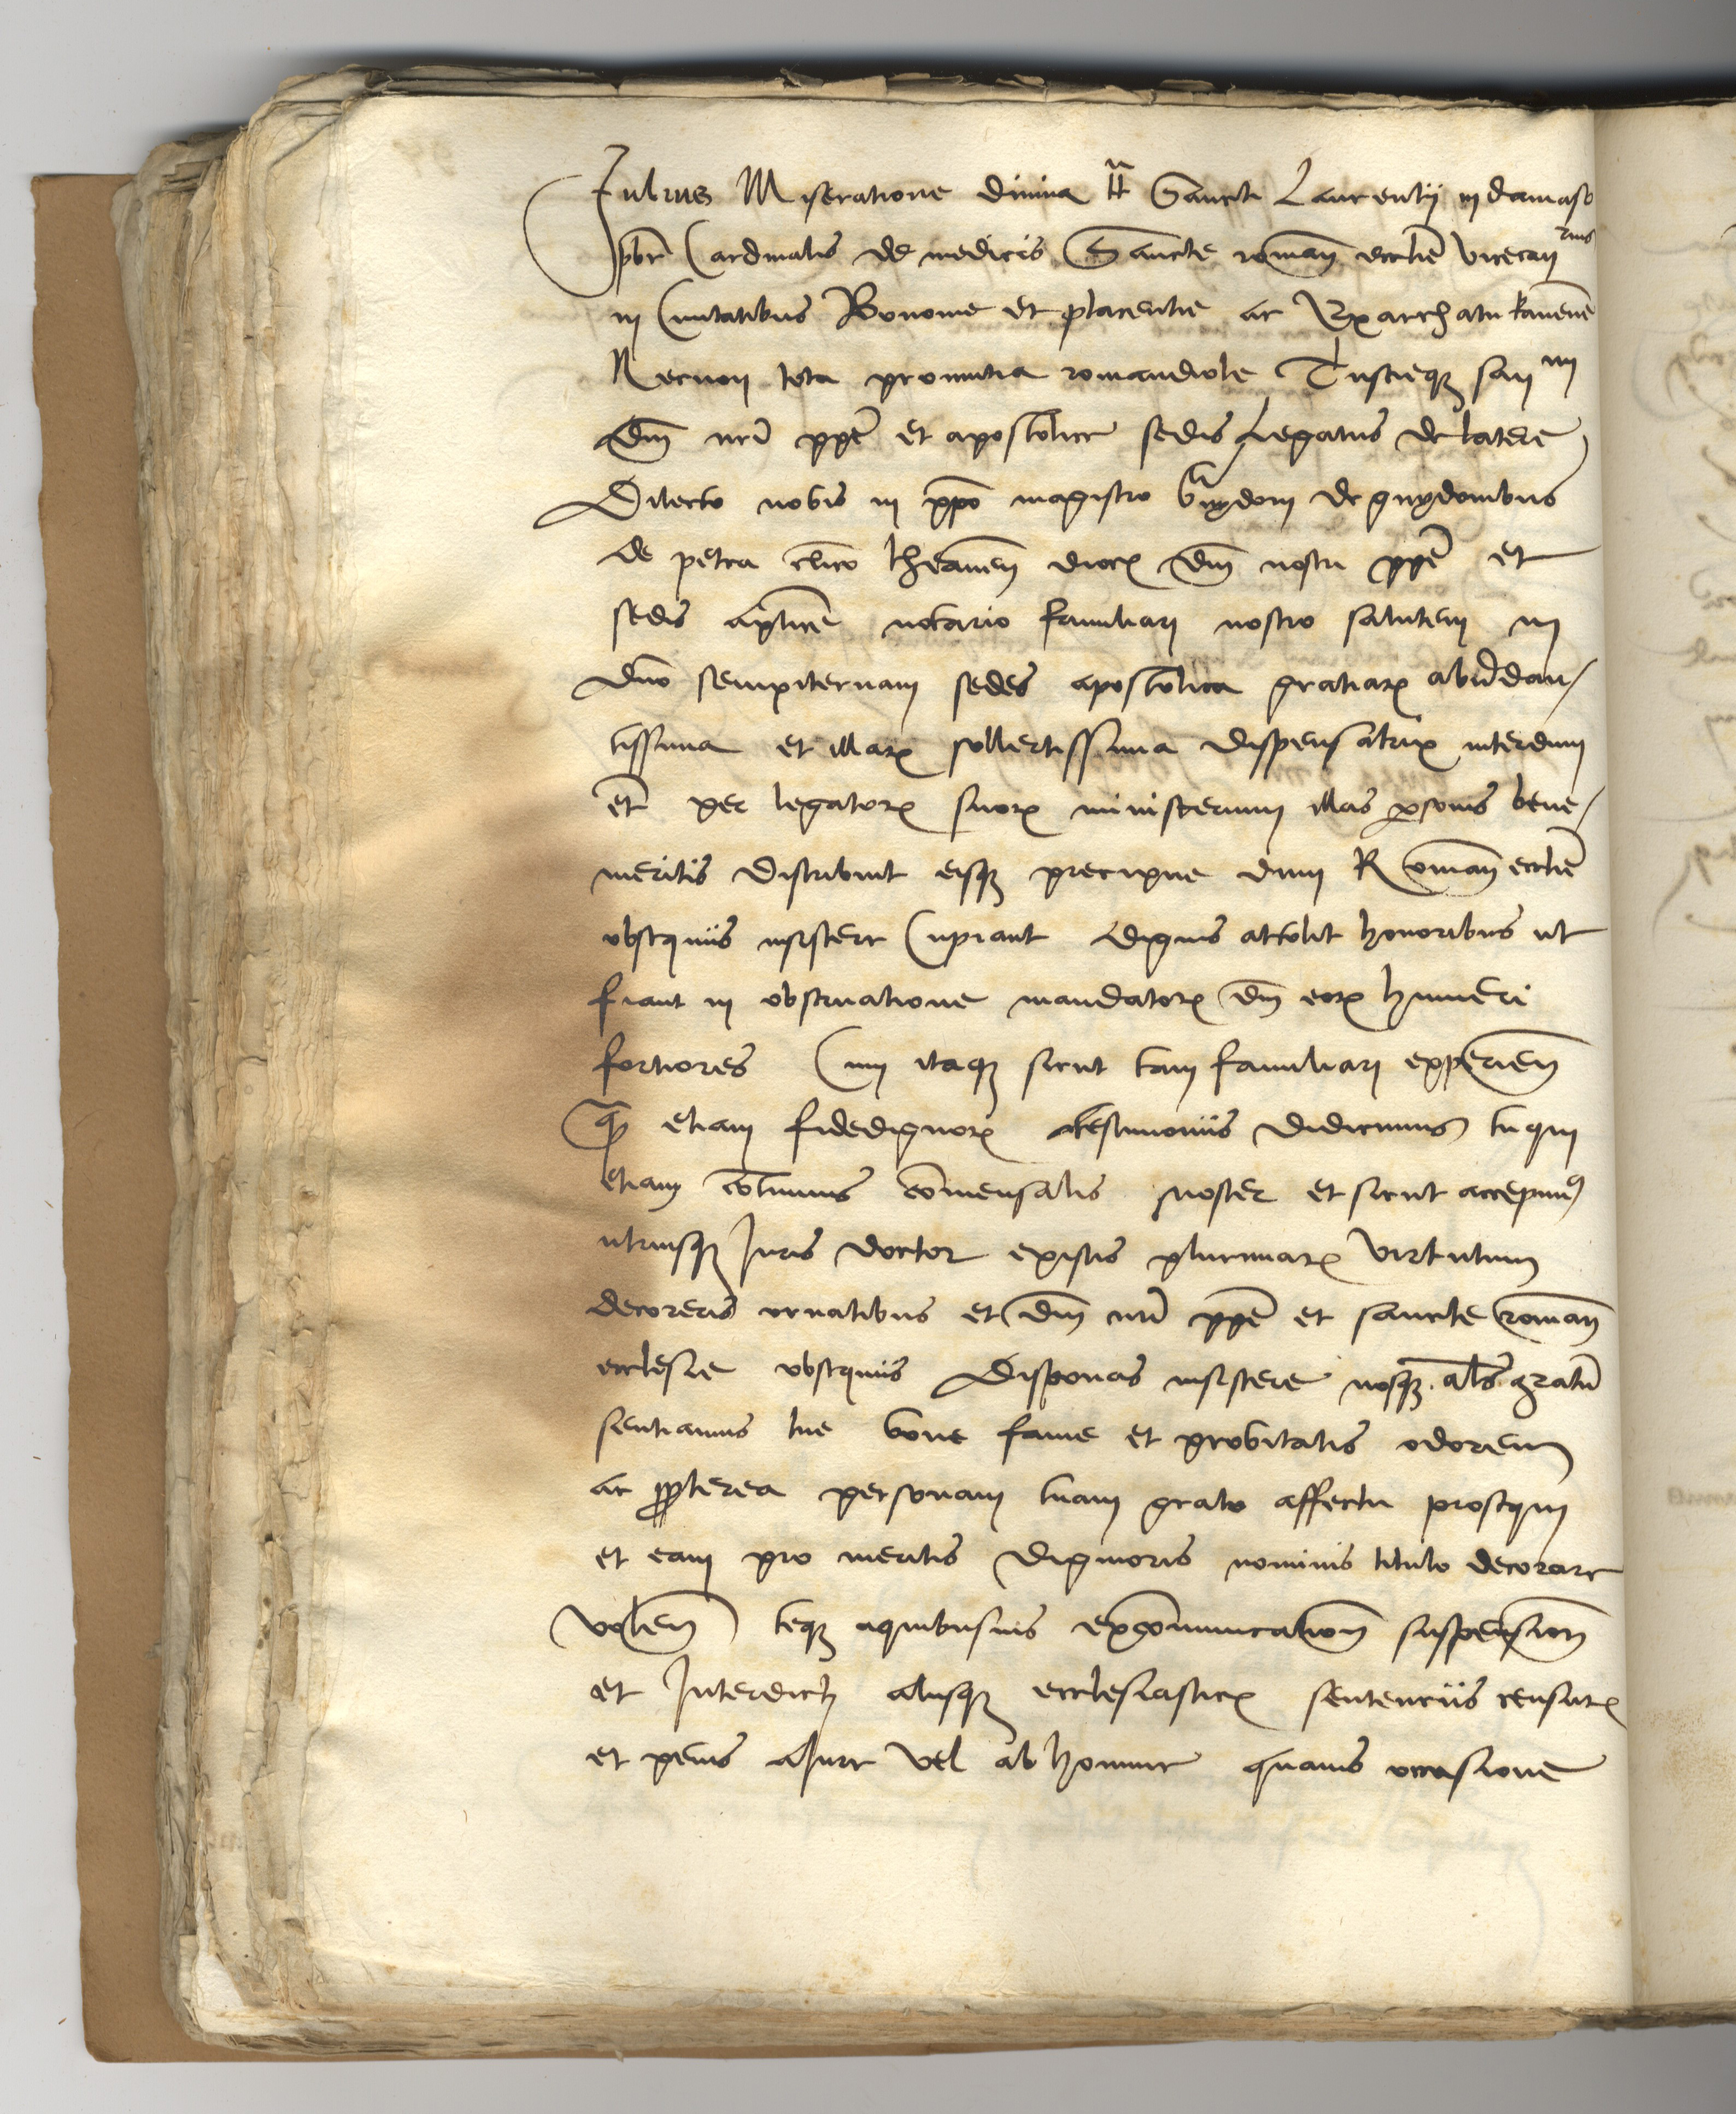 Iulius Miseratione divina tt Sancti Laurentij in damaso
pbr Cardinalis de medicis Sancte roman ecclie Vicecan rius
in Civitatibus Bononie et placentie ac Exarchatu Ravenne
Necnon tota provintia romandiole Tuscieq san mi
dni nri ppe et apostolice sedis Legatus de latere
Dilecto nobis in xpo magistro Guydoni de guydonibus
de petra clico theanen dioc dni nostri ppe et
sedis aplice notario familiari nostro salutem in
dno sempiternam sedes apostolica gratiar abundan/
tissima et illar sollertissima dispensatrix interdum
et per legator suor ministerium illas personis bene/
meritis distribuit eisq precipue dum Roman ecclie
obsequiis insistere Cupiant dignis attolit honoribus ut
fiant in observatione mandator dni eor humeri
fortiores Cum itaq sicut tam familiari experien
q etiam fidedignor testimoniis didicimus tu qui
etiam continuus comensalis noster et sicut accepimus
utriusq Juris doctor existis plurimar virtutum
decoreris ornatibus et dni nri ppe et sancte roman
ecclesie obsequiis disponas insistere nosq als gratu
sentiamus tue bone fame et probitatis odorem
ac propterea personam tuam grato affectu prosequi
et eam pro meritis dignioris nominis titulo decorare
volen teq a quibusvis excomunication suspension
et Interdicti aliisq ecclesiastic sentenciis censur
et penis a Jure vel ab homine quavis occasione